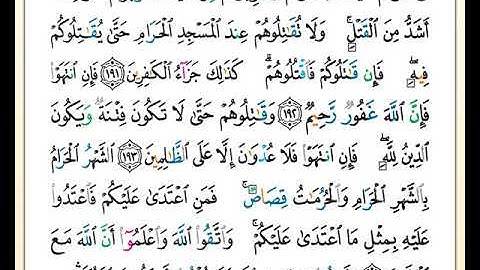 أَشَدُّ مِنَ ٱلْقَتْلِۚ وَلَا تُقَٰتِلُوهُمْ عِندَ ٱلْمَسْجِدِ ٱلْحَرَامِ حَتَّىٰ يُقَٰتِلُوكُمْ
فِيهِۖ فَإِن قَٰتَلُوكُمْ فَٱقْتُلُوهُمْۗ كَذَٰلِكَ جَزَآءُ ٱلْكَٰفِرِينَ ۝١٩١ فَإِنِ ٱنتَهَوْا۟
فَإِنَّ ٱللَّهَ غَفُورٌ رَّحِيمٌ ۝١٩٢ وَقَٰتِلُوهُمْ حَتَّىٰ لَا تَكُونَ فِتْنَةٌ وَيَكُونَ
ٱلدِّينُ لِلَّهِۖ فَإِنِ ٱنتَهَوْا۟ فَلَا عُدْوَٰنَ إِلَّا عَلَى ٱلظَّٰلِمِينَ ۝١٩٣ ٱلشَّهْرُ ٱلْحَرَامُ
بِٱلشَّهْرِ ٱلْحَرَامِ وَٱلْحُرُمَٰتُ قِصَاصٌۚ فَمَنِ ٱعْتَدَىٰ عَلَيْكُمْ فَٱعْتَدُوا۟
عَلَيْهِ بِمِثْلِ مَا ٱعْتَدَىٰ عَلَيْكُمْۚ وَٱتَّقُوا۟ ٱللَّهَ وَٱعْلَمُوٓا۟ أَنَّ ٱللَّهَ مَعَ